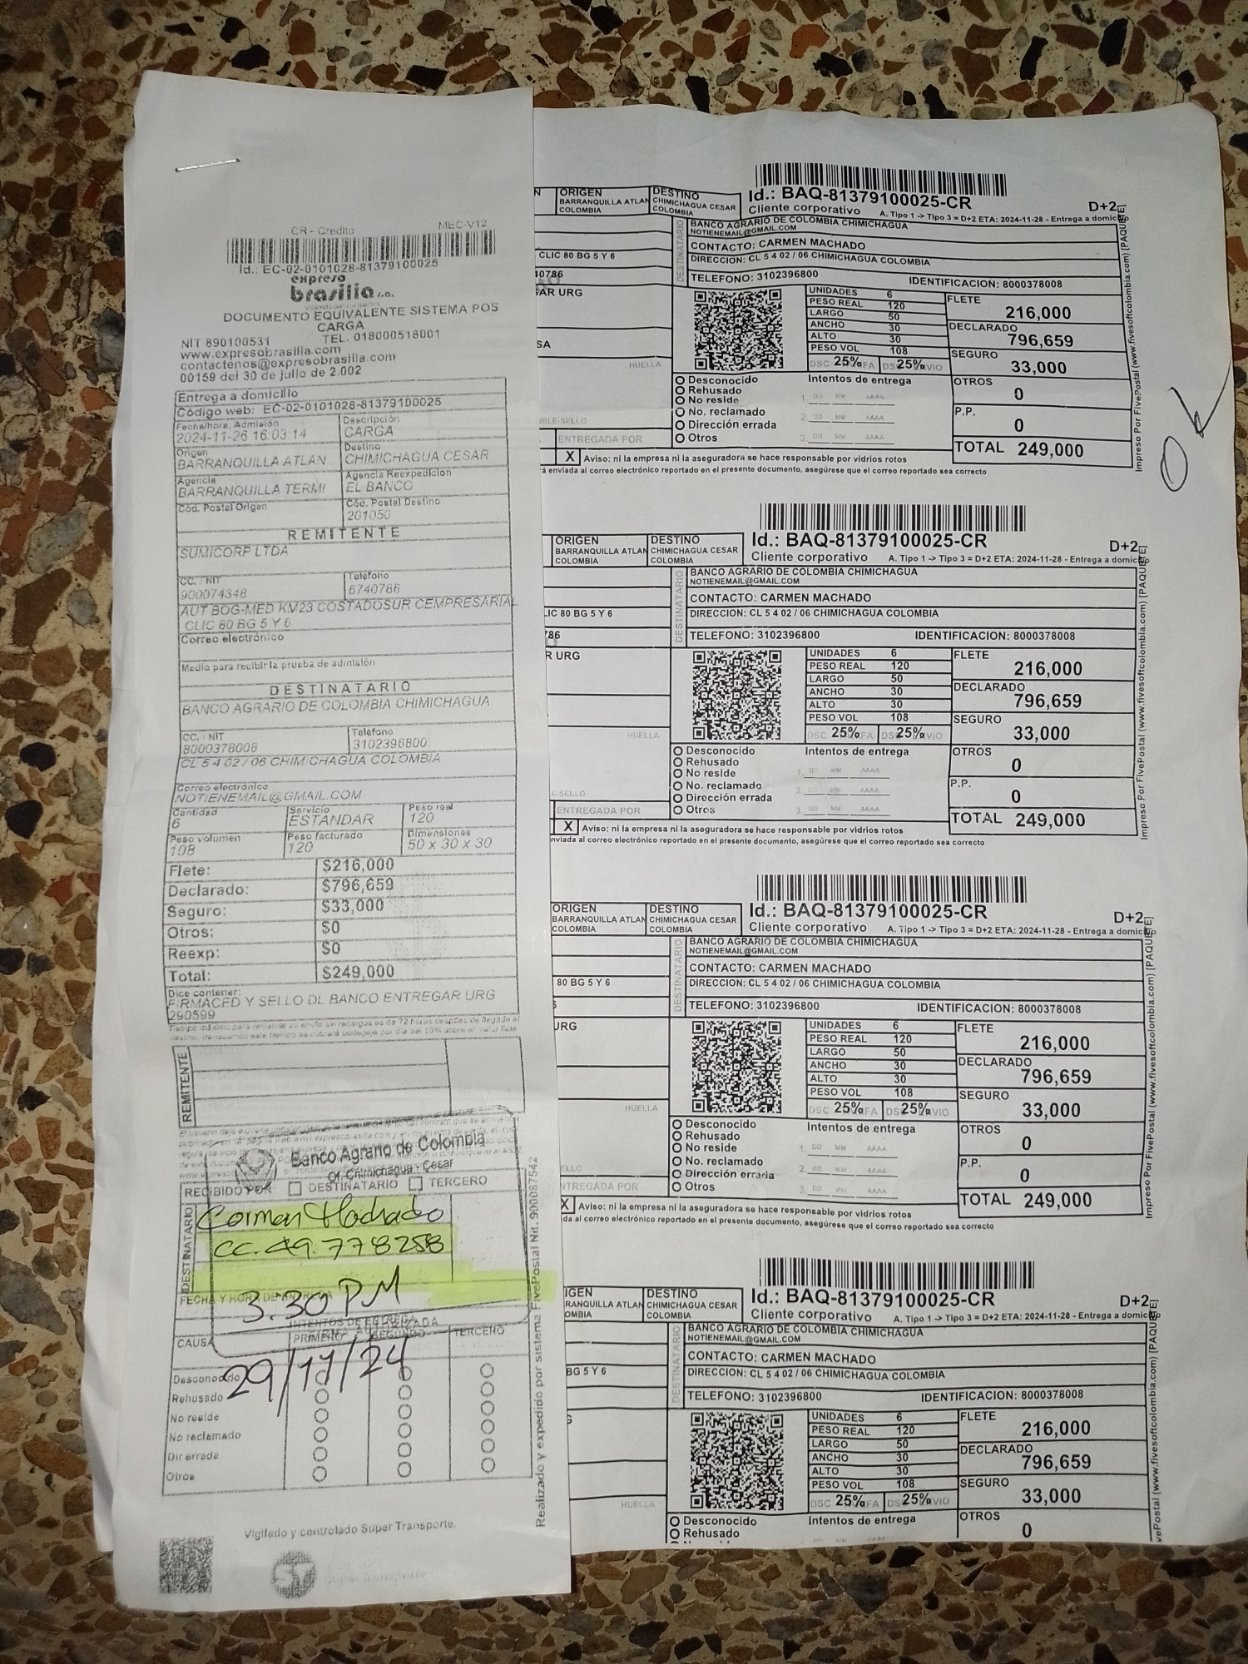 CR - Credito
MEC-V12
Id.: EC-02-0101028-81379100025
expreso
brasilia s.a.
DOCUMENTO EQUIVALENTE SISTEMA POS
CARGA
NIT 890100531 TEL. 018000518001
www.expresobrasilia.com
contactenos@expresobrasilia.com
00159 del 30 de julio de 2.002
Entrega a domicilio
Código web: EC-02-0101028-81379100025
Fecha/hora. Admisión Descripción
2024-11-26 16:03:14 CARGA
Origen Destino
BARRANQUILLA ATLAN CHIMICHAGUA CESAR
Agencia Agencia Reexpedicion
BARRANQUILLA TERMI EL BANCO
Cód. Postal Origen Cód. Postal Destino
201050
REMITENTE
SUMICORP LTDA
CC. / NIT Teléfono
900074348 6740786
AUT BOG-MED KV23 COSTADOSUR CEMPRESARIAL
CLIC 80 BG 5 Y 6
Correo electrónico
Medio para recibir la prueba de admisión
DESTINATARIO
BANCO AGRARIO DE COLOMBIA CHIMICHAGUA
CC. / NIT Telefono
8000378008 3102396800
CL 5 4 02 / 06 CHIMICHAGUA COLOMBIA
Correo electrónico
NOTIENEMAIL@GMAIL.COM
Cantidad Servicio Peso real
6 ESTANDAR 120
Peso volumen Peso facturado Dimensiones
108 120 50 x 30 x 30
Flete: $216,000
Declarado: $796,659
Seguro: $33,000
Otros: $0
Reexp: $0
Total: $249,000
Dice contener:
FIRMACED Y SELLO DL BANCO ENTREGAR URG
290599
REMITENTE
Banco Agrario de Colombia
Of. Chimichagua - Cesar
RECIBIDO POR DESTINATARIO TERCERO
DESTINATARIO
Carmen Machado
CC. 49.778258
3:30 PM
INTENTOS DE ENTREGA
CAUSA PRIMERO SEGUNDO TERCERO
29/11/24
Desconocido
Rehusado
No reside
No reclamado
Dir errada
Otros
Realizado y expedido por sistema FivePostal Nit. 900087542
Vigilado y controlado Super Transporte.
Id.: BAQ-81379100025-CR
D+2
ORIGEN DESTINO Cliente corporativo A. Tipo 1 -> Tipo 3 = D+2 ETA: 2024-11-28 - Entrega a domicilio
BARRANQUILLA ATLAN CHIMICHAGUA CESAR
COLOMBIA COLOMBIA
DESTINATARIO
BANCO AGRARIO DE COLOMBIA CHIMICHAGUA
NOTIENEMAIL@GMAIL.COM
CONTACTO: CARMEN MACHADO
CLIC 80 BG 5 Y 6 DIRECCION: CL 5 4 02 / 06 CHIMICHAGUA COLOMBIA
TELEFONO: 3102396800 IDENTIFICACION: 8000378008
UNIDADES 6 FLETE
PESO REAL 120 216,000
LARGO 50 DECLARADO
ANCHO 30 796,659
ALTO 30 SEGURO
PESO VOL 108 33,000
HUELLA
DSC 25% FA DS 25% VIO
Desconocido Intentos de entrega OTROS
Rehusado 0
No reside 1. DD MM AAAA
No. reclamado 2. DD MM AAAA P.P.
Dirección errada 0
Otros 3. DD MM AAAA
ENTREGADA POR
TOTAL 249,000
X Aviso: ni la empresa ni la aseguradora se hace responsable por vidrios rotos
enviada al correo electrónico reportado en el presente documento, asegúrese que el correo reportado sea correcto
Impreso Por FivePostal (www.fivesoftcolombia.com) [PAQUETE]
OK
Id.: BAQ-81379100025-CR
D+2
ORIGEN DESTINO Cliente corporativo A. Tipo 1 -> Tipo 3 = D+2 ETA: 2024-11-28 - Entrega a domicilio
BARRANQUILLA ATLAN CHIMICHAGUA CESAR
COLOMBIA COLOMBIA
DESTINATARIO
BANCO AGRARIO DE COLOMBIA CHIMICHAGUA
NOTIENEMAIL@GMAIL.COM
CONTACTO: CARMEN MACHADO
LIC 80 BG 5 Y 6 DIRECCION: CL 5 4 02 / 06 CHIMICHAGUA COLOMBIA
TELEFONO: 3102396800 IDENTIFICACION: 8000378008
UNIDADES 6 FLETE
PESO REAL 120 216,000
LARGO 50 DECLARADO
ANCHO 30 796,659
ALTO 30 SEGURO
PESO VOL 108 33,000
HUELLA
DSC 25% FA DS 25% VIO
Desconocido Intentos de entrega OTROS
Rehusado 0
No reside 1. DD MM AAAA
No. reclamado 2. DD MM AAAA P.P.
Dirección errada 0
Otros 3. DD MM AAAA
ENTREGADA POR
TOTAL 249,000
X Aviso: ni la empresa ni la aseguradora se hace responsable por vidrios rotos
nviada al correo electrónico reportado en el presente documento, asegúrese que el correo reportado sea correcto
Impreso Por FivePostal (www.fivesoftcolombia.com) [PAQUETE]
Id.: BAQ-81379100025-CR
D+2
ORIGEN DESTINO Cliente corporativo A. Tipo 1 -> Tipo 3 = D+2 ETA: 2024-11-28 - Entrega a domicilio
BARRANQUILLA ATLAN CHIMICHAGUA CESAR
COLOMBIA COLOMBIA
DESTINATARIO
BANCO AGRARIO DE COLOMBIA CHIMICHAGUA
NOTIENEMAIL@GMAIL.COM
CONTACTO: CARMEN MACHADO
80 BG 5 Y 6 DIRECCION: CL 5 4 02 / 06 CHIMICHAGUA COLOMBIA
TELEFONO: 3102396800 IDENTIFICACION: 8000378008
URG
UNIDADES 6 FLETE
PESO REAL 120 216,000
LARGO 50 DECLARADO
ANCHO 30 796,659
ALTO 30 SEGURO
PESO VOL 108 33,000
HUELLA
DSC 25% FA DS 25% VIO
Desconocido Intentos de entrega OTROS
Rehusado 0
No reside 1. DD MM AAAA
No. reclamado 2. DD MM AAAA P.P.
Dirección errada 0
Otros 3. DD MM AAAA
NTREGADA POR
TOTAL 249,000
X Aviso: ni la empresa ni la aseguradora se hace responsable por vidrios rotos
da al correo electrónico reportado en el presente documento, asegúrese que el correo reportado sea correcto
Impreso Por FivePostal (www.fivesoftcolombia.com) [PAQUETE]
Id.: BAQ-81379100025-CR
D+2
IGEN DESTINO Cliente corporativo A. Tipo 1 -> Tipo 3 = D+2 ETA: 2024-11-28 - Entrega a domicilio
RRANQUILLA ATLAN CHIMICHAGUA CESAR
OMBIA COLOMBIA
DESTINATARIO
BANCO AGRARIO DE COLOMBIA CHIMICHAGUA
NOTIENEMAIL@GMAIL.COM
CONTACTO: CARMEN MACHADO
BG 5 Y 6 DIRECCION: CL 5 4 02 / 06 CHIMICHAGUA COLOMBIA
TELEFONO: 3102396800 IDENTIFICACION: 8000378008
UNIDADES 6 FLETE
PESO REAL 120 216,000
LARGO 50 DECLARADO
ANCHO 30 796,659
ALTO 30 SEGURO
PESO VOL 108 33,000
HUELLA
DSC 25% FA DS 25% VIO
Desconocido Intentos de entrega OTROS
Rehusado 0